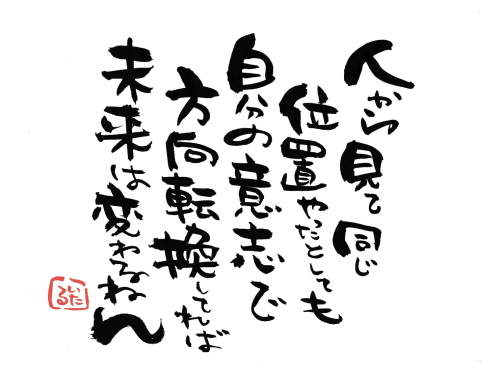 人から見て同じ
位置やったとしても
自分の意志で
方向転換してれば
未来は変わるねん